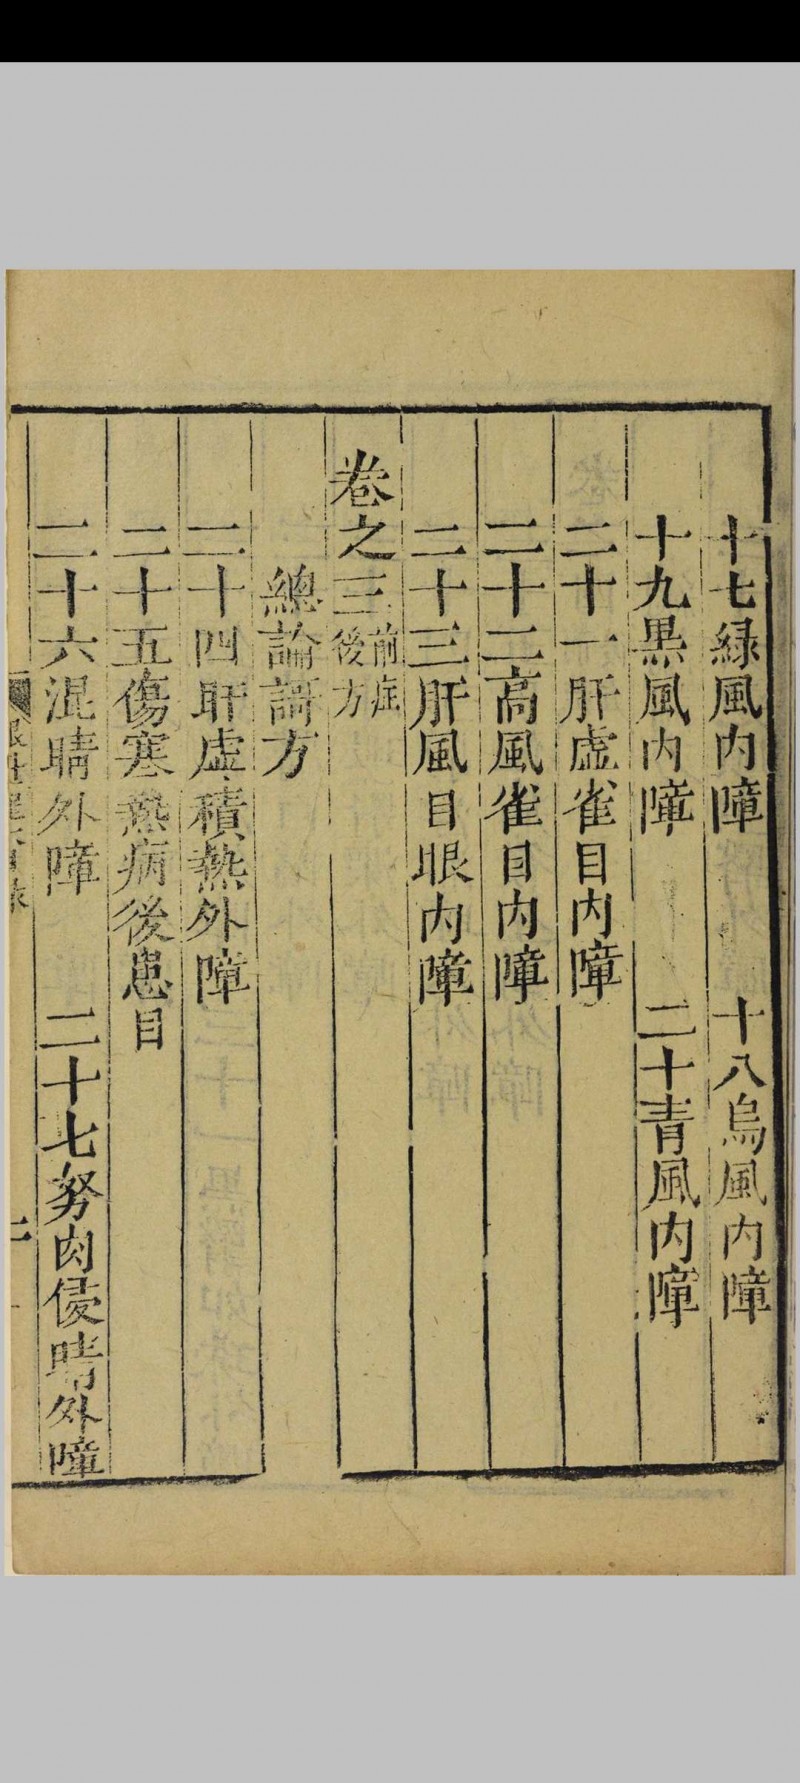 十七綠風内障 十八烏風内障
十九黒風内障 二十青風内障
二十一肝虚雀目内障
二十二高風雀目内障
二十三肝風目眼内障
卷之三前症後方
總論謌方
二十四肝虚積熱外障
二十五傷寒熱病後患目
二十六混睛外障 二十七努肉侵睛外障